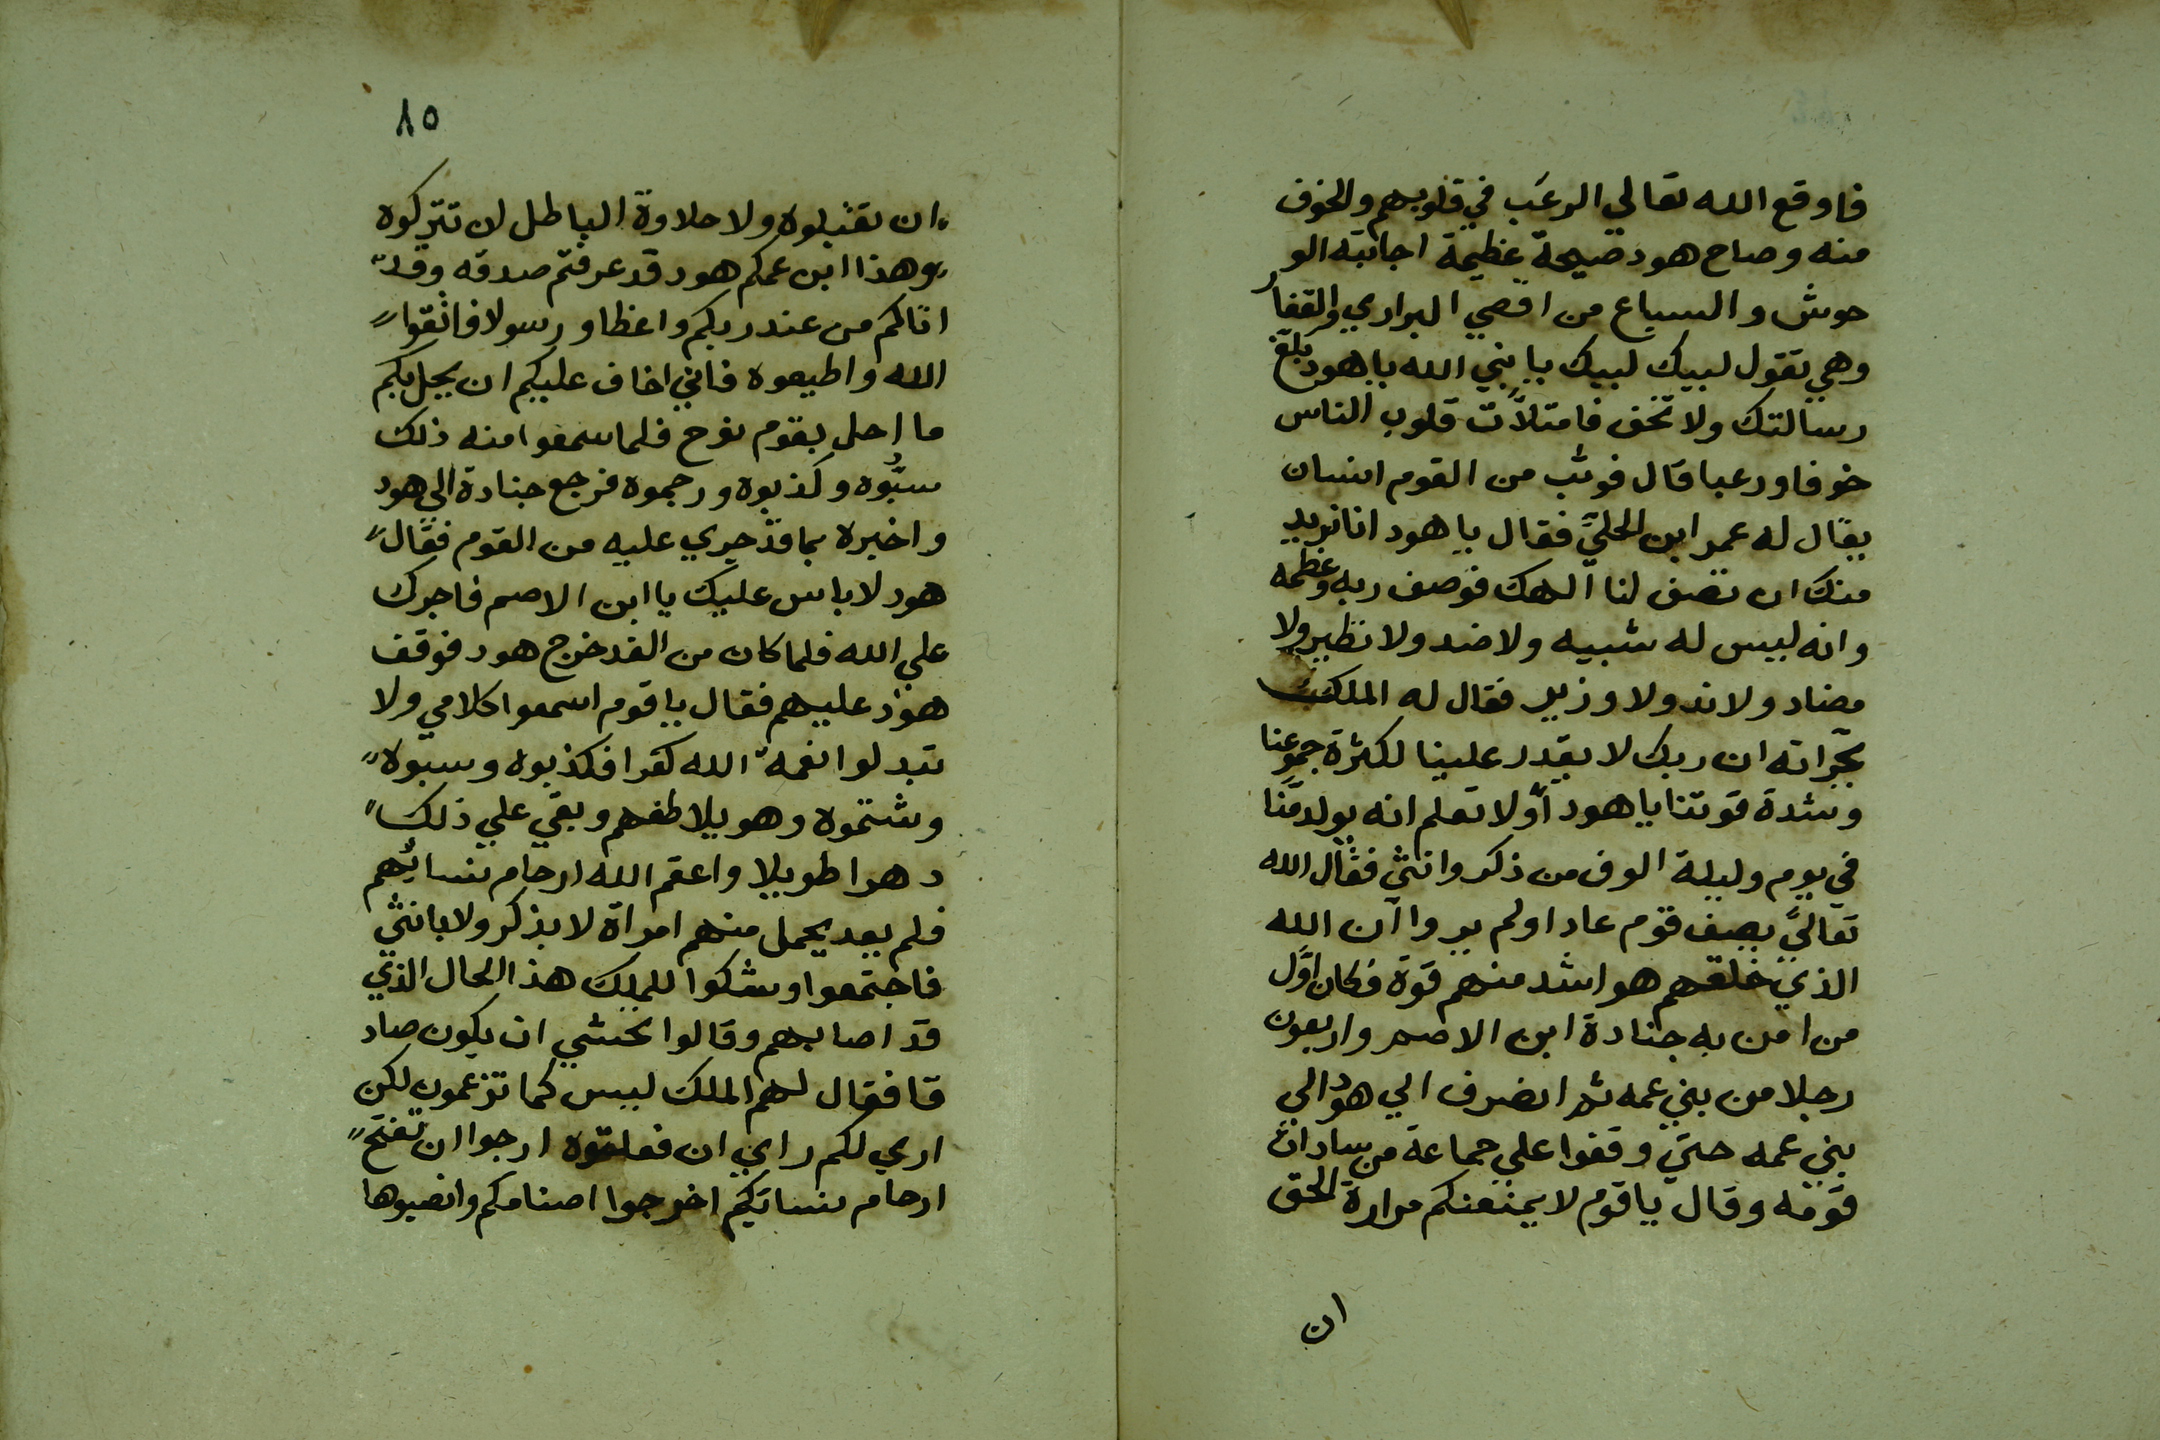 فاوقع الله تعالي الرعب في قلوبهم والخوف
منه وصاح هود صيحة عظيمة اجابته الو
حوش والسباع من اقصي البراري والقفار
وهي تقول لبيك لبيك يا نبي الله يا هود بلغ
رسالتك ولا تخف فامتلأت قلوب الناس
خوفا ورعبا قال فوثب من القوم انسان
يقال له عمير ابن الحلي فقال يا هود انا نريد
منك ان تصف لنا الهك فوصف ربه وعظمه
وانه ليس له شبيه ولا ضد ولا نظير ولا
مضاد ولا ند ولا وزير فقال له الملك
بجراته ان ربك لا يقدر علينا لكثرة جموعنا
وشدة قوتنا يا هود أولا تعلم انه يولد منا
في يوم وليلة الوف من ذكر وانثي فقال الله
تعالي يصف قوم عاد اولم يروا ان الله
الذي خلقهم هو اشد منهم قوة فكان اول
من امن به جنادة ابن الاصم واربعون
رجلا من بني عمه ثم انصرف الي هود الي
بني عمه حتي وقفوا علي جماعة من سادات
قومه وقال يا قوم لا يمنعنكم مرارة الحق
ان
٨٥
ان تقبلوه ولا حلاوة الباطل لن تتركوه
وهذا ابن عمكم هود قد عرفتم صدقه وقد
اتاكم من عند ربكم واعظا ورسولا فاتقوا
الله واطيعوه فاني اخاف عليكم ان يحل بكم
ما احل بقوم نوح فلما سمعوا منه ذلك
سبُّوه وكذبوه ورجموه فرجع جنادة الي هود
واخبره بما قد جري عليه من القوم فقال
هود لا باس عليك يا ابن الاصم فاجرك
علي الله فلما كان من الغد خرج هود فوقف
هود عليهم فقال يا قوم اسمعوا كلامي ولا
تبدلوا نعمة الله كفرا فكذبوه وسبوه
وشتموه وهو يلاطفهم وبقي علي ذلك
دهرا طويلا واعقم الله ارحام نسائهم
فلم يعد يحمل منهم امراة لا بذكر ولا بانثي
فاجتمعوا وشكوا للملك هذا الحال الذي
قد اصابهم وقالوا نخشي ان يكون صاد
قا فقال لهم الملك ليس كما تزعمون لكن
اري لكم راي ان فعلتموه ارجوا ان تفتح
ارحام نسائكم اخرجوا اصنامكم وانصبوها